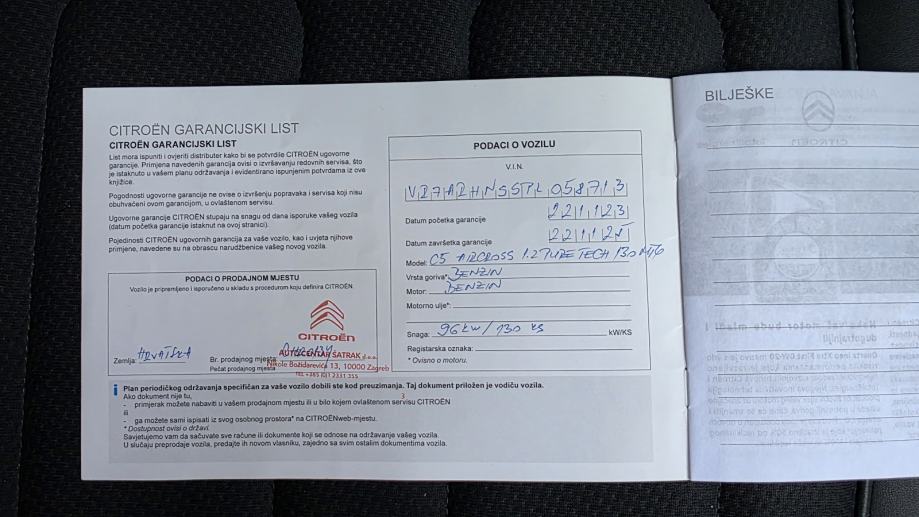 CITROËN GARANCIJSKI LIST
CITROËN GARANCIJSKI LIST
List mora ispuniti i ovjeriti distributer kako bi se potvrdile CITROËN ugovorne
garancije. Primjena navedenih garancija ovisi o izvršavanju redovnih servisa, što
je istaknuto u vašem planu održavanja i evidentirano ispunjenim potvrdama iz ove
knjižice.
Pogodnosti ugovorne garancije ne ovise o izvršenju popravaka i servisa koji nisu
obuhvaćeni ovom garancijom, u ovlaštenom servisu.
Ugovorne garancije CITROËN stupaju na snagu od dana isporuke vašeg vozila
(datum početka garancije istaknut na ovoj stranici).
Pojedinosti CITROËN ugovornih garancija za vaše vozilo, kao i uvjeta njihove
primjene, navedene su na obrascu narudžbenice vašeg novog vozila.
PODACI O PRODAJNOM MJESTU
Vozilo je pripremljeno i isporučeno u skladu s procedurom koju definira CITROËN.
CITROËN
Zemlja: HRVATSKA
Br. prodajnog mjesta:
AUTOCENTAR SATRAK d.o.o.
Pečat prodajnog mjesta
Nikole Božidarevića 13, 10000 Zagreb
TEL +385 (0)1 2331 355
PODACI O VOZILU
V.I.N.
Datum početka garancije 221123
Datum završetka garancije
Model: C5 AIRCROSS 1.2 PURE TECH 130
Vrsta goriva* BENZIN
Motor: BENZIN
Motorno ulje*:
Snaga: 96 kw/130 ks kW/KS
Registarska oznaka:
* Ovisno o motoru.
i Plan periodičkog održavanja specifičan za vaše vozilo dobili ste kod preuzimanja. Taj dokument priložen je vodiču vozila.
Ako dokument nije tu,
- primjerak možete nabaviti u vašem prodajnom mjestu ili u bilo kojem ovlaštenom servisu CITROËN
ili
- ga možete sami ispisati iz svog osobnog prostora* na CITROËNweb-mjestu.
* Dostupnost ovisi o državi.
Savjetujemo vam da sačuvate sve račune ili dokumente koji se odnose na održavanje vašeg vozila.
U slučaju preprodaje vozila, predajte ih novom vlasniku, zajedno sa svim ostalim dokumentima vozila.
3
BILJEŠKE